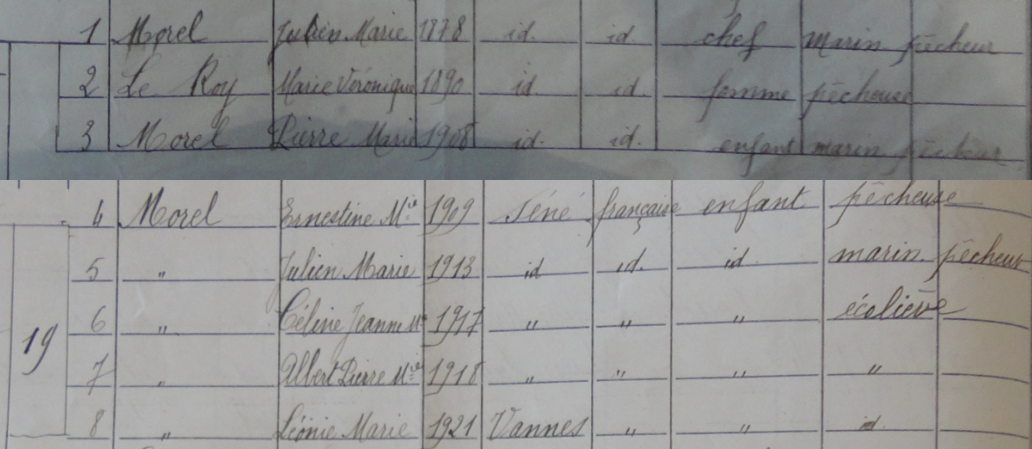 1 Morel Julien Marie 1878 id. id chef marin pêcheur
2 Le Roy Marie Véronique 1890 id. id. femme pêcheuse
3 Morel Pierre Marie 1908 id. id. enfant marin pêcheur
4 Morel Ernestine Mie 1909 Séné française enfant pêcheuse
5 " Julien Marie 1913 id id. id marin pêcheur
6 " Céline Jeanne Mie 1917 " " " écolière
19
7 " Albert Pierre Mie 1918 " " " "
8 " Léonie Marie 1921 Vannes " " id